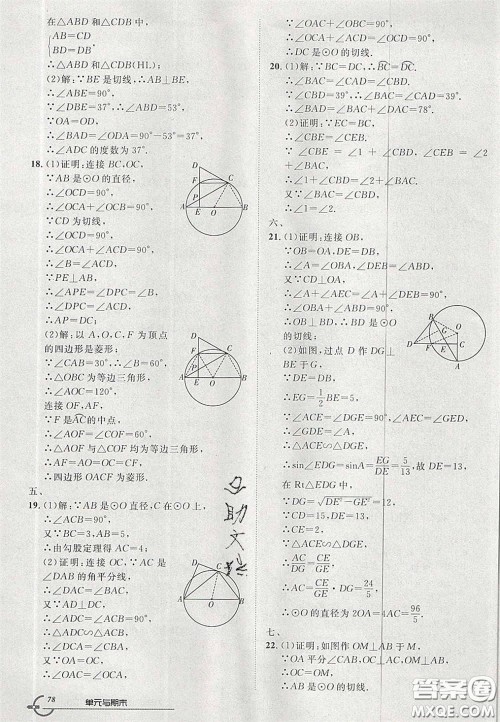 在△ABD和△CDB中,
AB=CD
BD=DB'
∴△ABD和△CDB(HL);
(2)解:∵BE是切线,
∴∠ABE=90°,
∵∠DBE=37°,∴∠ABD=53°,
∵OA=OD,
∴∠BAD=∠ODA=90°-53°=37°,
∴∠ADC的度数为37°
18.(1)证明:连接BC,OC,
∵AB是⊙O的直径,
∴∠OCD=90°,
∴∠OCA+∠OCB=90°,
∵CD为切线,
∴∠OCA+∠ACD=90°,
∴∠B=∠ACD,
∵PE⊥AB,
∴∠APE=∠DPC=∠B,
∴∠DPC=∠ACD,
∴AP=DC;
(2)解:以A,O,C,F为顶点
的四边形是菱形;
∵∠CAB=30°,∴∠B=60°,
∴△OBC为等边三角形,
∴∠AOC=120°,
连接OF,AF,
∵F是AC的中点,
∴∠AOF=∠COF=60°,
∴△AOF与△COF均为等边三角形,
∴四边形OACF为菱形.
五、
19.(1)解:∵AB是⊙O直径,C在⊙O上,
∴∠ACB=90°,
又∵BC=3,AB=5,
∴由勾股定理得AC=4;
(2)证明:连接OC ∵AC是
∠DAB的角平分线,
∴∠DAC=∠BAC,
又∵AD⊥DC,
∴∠ADC=∠ACB=90°,
∴△ADC∽△ACB,
∴∠DCA=∠CBA,
又∵OA=OC,
∴∠OAC=∠OCA,
78
单元与期末
∵∠OAC+∠OBC=90°,
∴∠OCA+∠ACD=∠OCD=90°,
∴DC是⊙O的切线.
20.(1)解:∵BC=DC,∴BC=DC.
∴∠BAC=∠CAD=∠CBD.
∵∠CBD=39°,∴∠CAD=39°,
∴∠BAD=∠BAC+∠DAC=78°.
(2)证明:∵EC=BC,
∴∠CBE=∠CEB,
∵∠CBE=∠1+∠CBD,∠CEB=
∠2+∠BAC,
∴∠1+∠CBD=∠2+∠BAC,
又∵∠BAC=∠CBD,
∴∠1=∠2.
六、
21.(1)证明:连接OB,
∵OB=OA,DE=DB,
∴∠A=∠OBA,∠DEB=∠ABD,
又∵CD⊥OA,
∴∠A+∠AEC=∠A+∠DEB=90°,
∴∠OBA+∠ABD=90°,
∴OB⊥BD,∴BD是⊙O
的切线;
(2)如图,过点D作DG⊥
BE于G,
∵DE=DB,
∴EG=1/2 BE=5,
∵∠ACE=∠DGE=90°,∠AEC=∠GED,
∴∠GDE=∠A,
∴△ACE∽△DGE,
∴sin∠EDG=sinA=EG/DE=5/13,即DE=13,
在Rt△EDG中,
∵DG=√DE²-GE²=12,
∵CD=15,DE=13,
∴CE=2,
∵△ACE∽△DGE,
∴AC/DG=CE/GE,
∴AC=CE/GE·DG=24/5,
∴⊙O的直径为2OA=4AC=96/5
七、
22.(1)证明:如图作OM⊥AB于M,
∵OA=OB,OM⊥AB,
答案圈
MXQE.COM